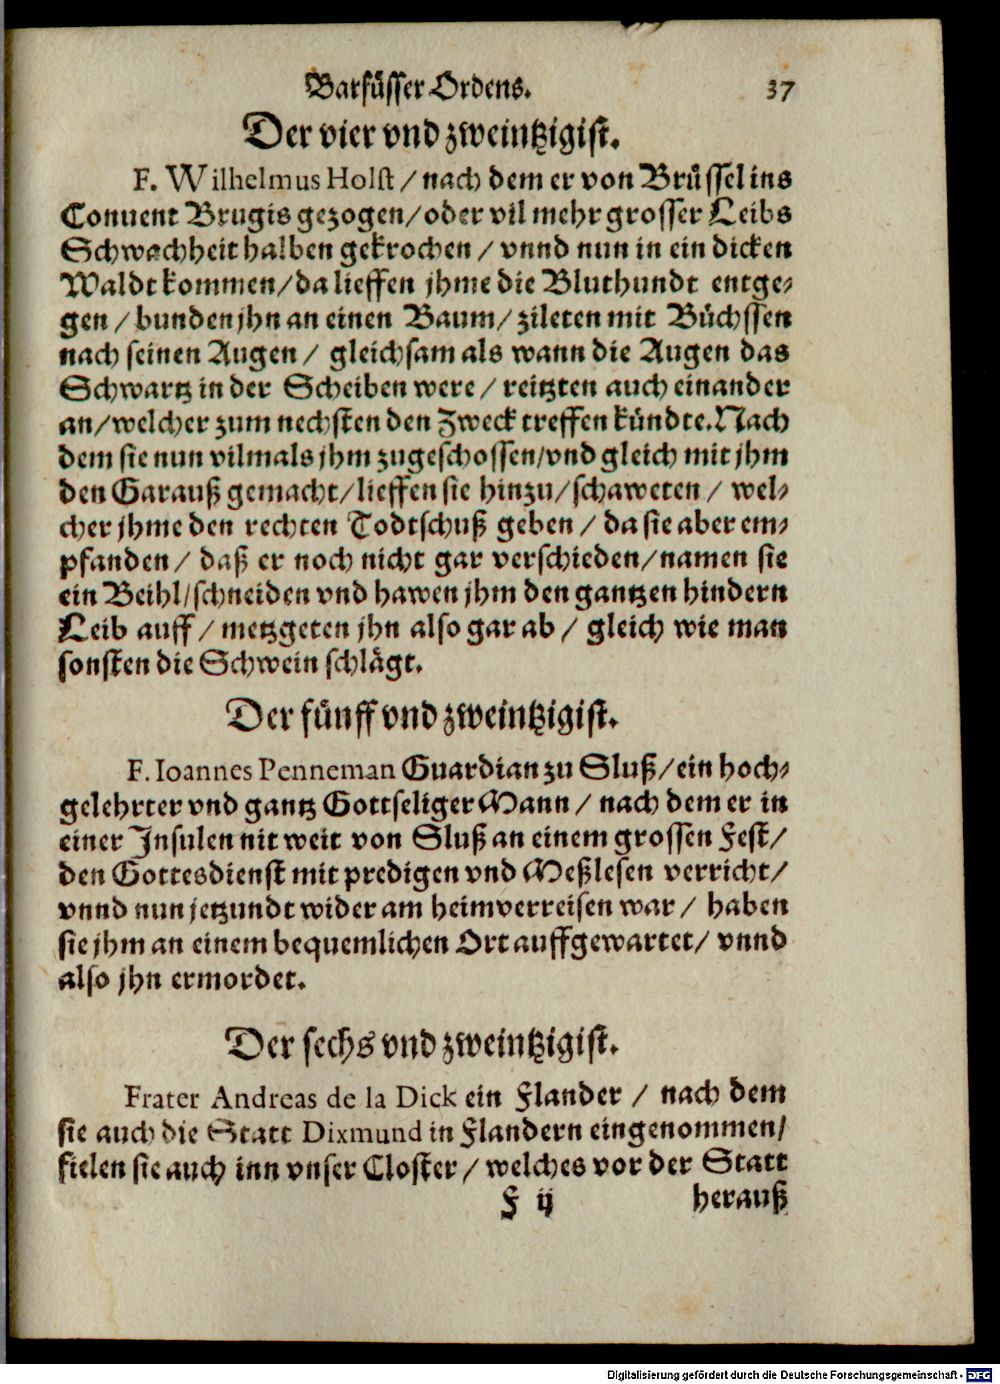 Barfüsser Ordens. 37
Der vier vnd zweintzigist.
F. Wilhelmus Holst / nach dem er von Brüssel ins
Conuent Brugis gezogen/oder vil mehr grosser Leibs
Schwachheit halben gekrochen / vnnd nun in ein dicken
Waldt kommen/da lieffen jhme die Bluthundt entge-
gen / bunden jhn an einen Baum/ zileten mit Büchssen
nach seinen Augen / gleichsam als wann die Augen das
Schwartz in der Scheiben were / reitzten auch einander
an/welcher zum nechsten den Zweck treffen kündte. Nach
dem sie nun vilmals jhm zugeschossen/vnd gleich mit jhm
den Garauß gemacht/lieffen sie hinzu/schaweten / wel-
cher jhme den rechten Todtschuß geben / da sie aber em-
pfanden / daß er noch nicht gar verschieden/namen sie
ein Beihl/schneiden vnd hawen jhm den gantzen hindern
Leib auff / metzgeten jhn also gar ab / gleich wie man
sonsten die Schwein schlägt.
Der fünff vnd zweintzigist.
F. Ioannes Penneman Guardian zu Sluß/ein hoch-
gelehrter vnd gantz Gottseliger Mann / nach dem er in
einer Insulen nit weit von Sluß an einem grossen Fest/
den Gottesdienst mit predigen vnd Meßlesen verricht/
vnnd nun jetzundt wider am heimverreisen war / haben
sie jhm an einem bequemlichen Ort auffgewartet/ vnnd
also jhn ermordet.
Der sechs vnd zweintzigist.
Frater Andreas de la Dick ein Flander / nach dem
sie auch die Statt Dixmund in Flandern eingenommen/
fielen sie auch inn vnser Closter / welches vor der Statt
F ij herauß
Digitalisierung gefördert durch die Deutsche Forschungsgemeinschaft - DFG